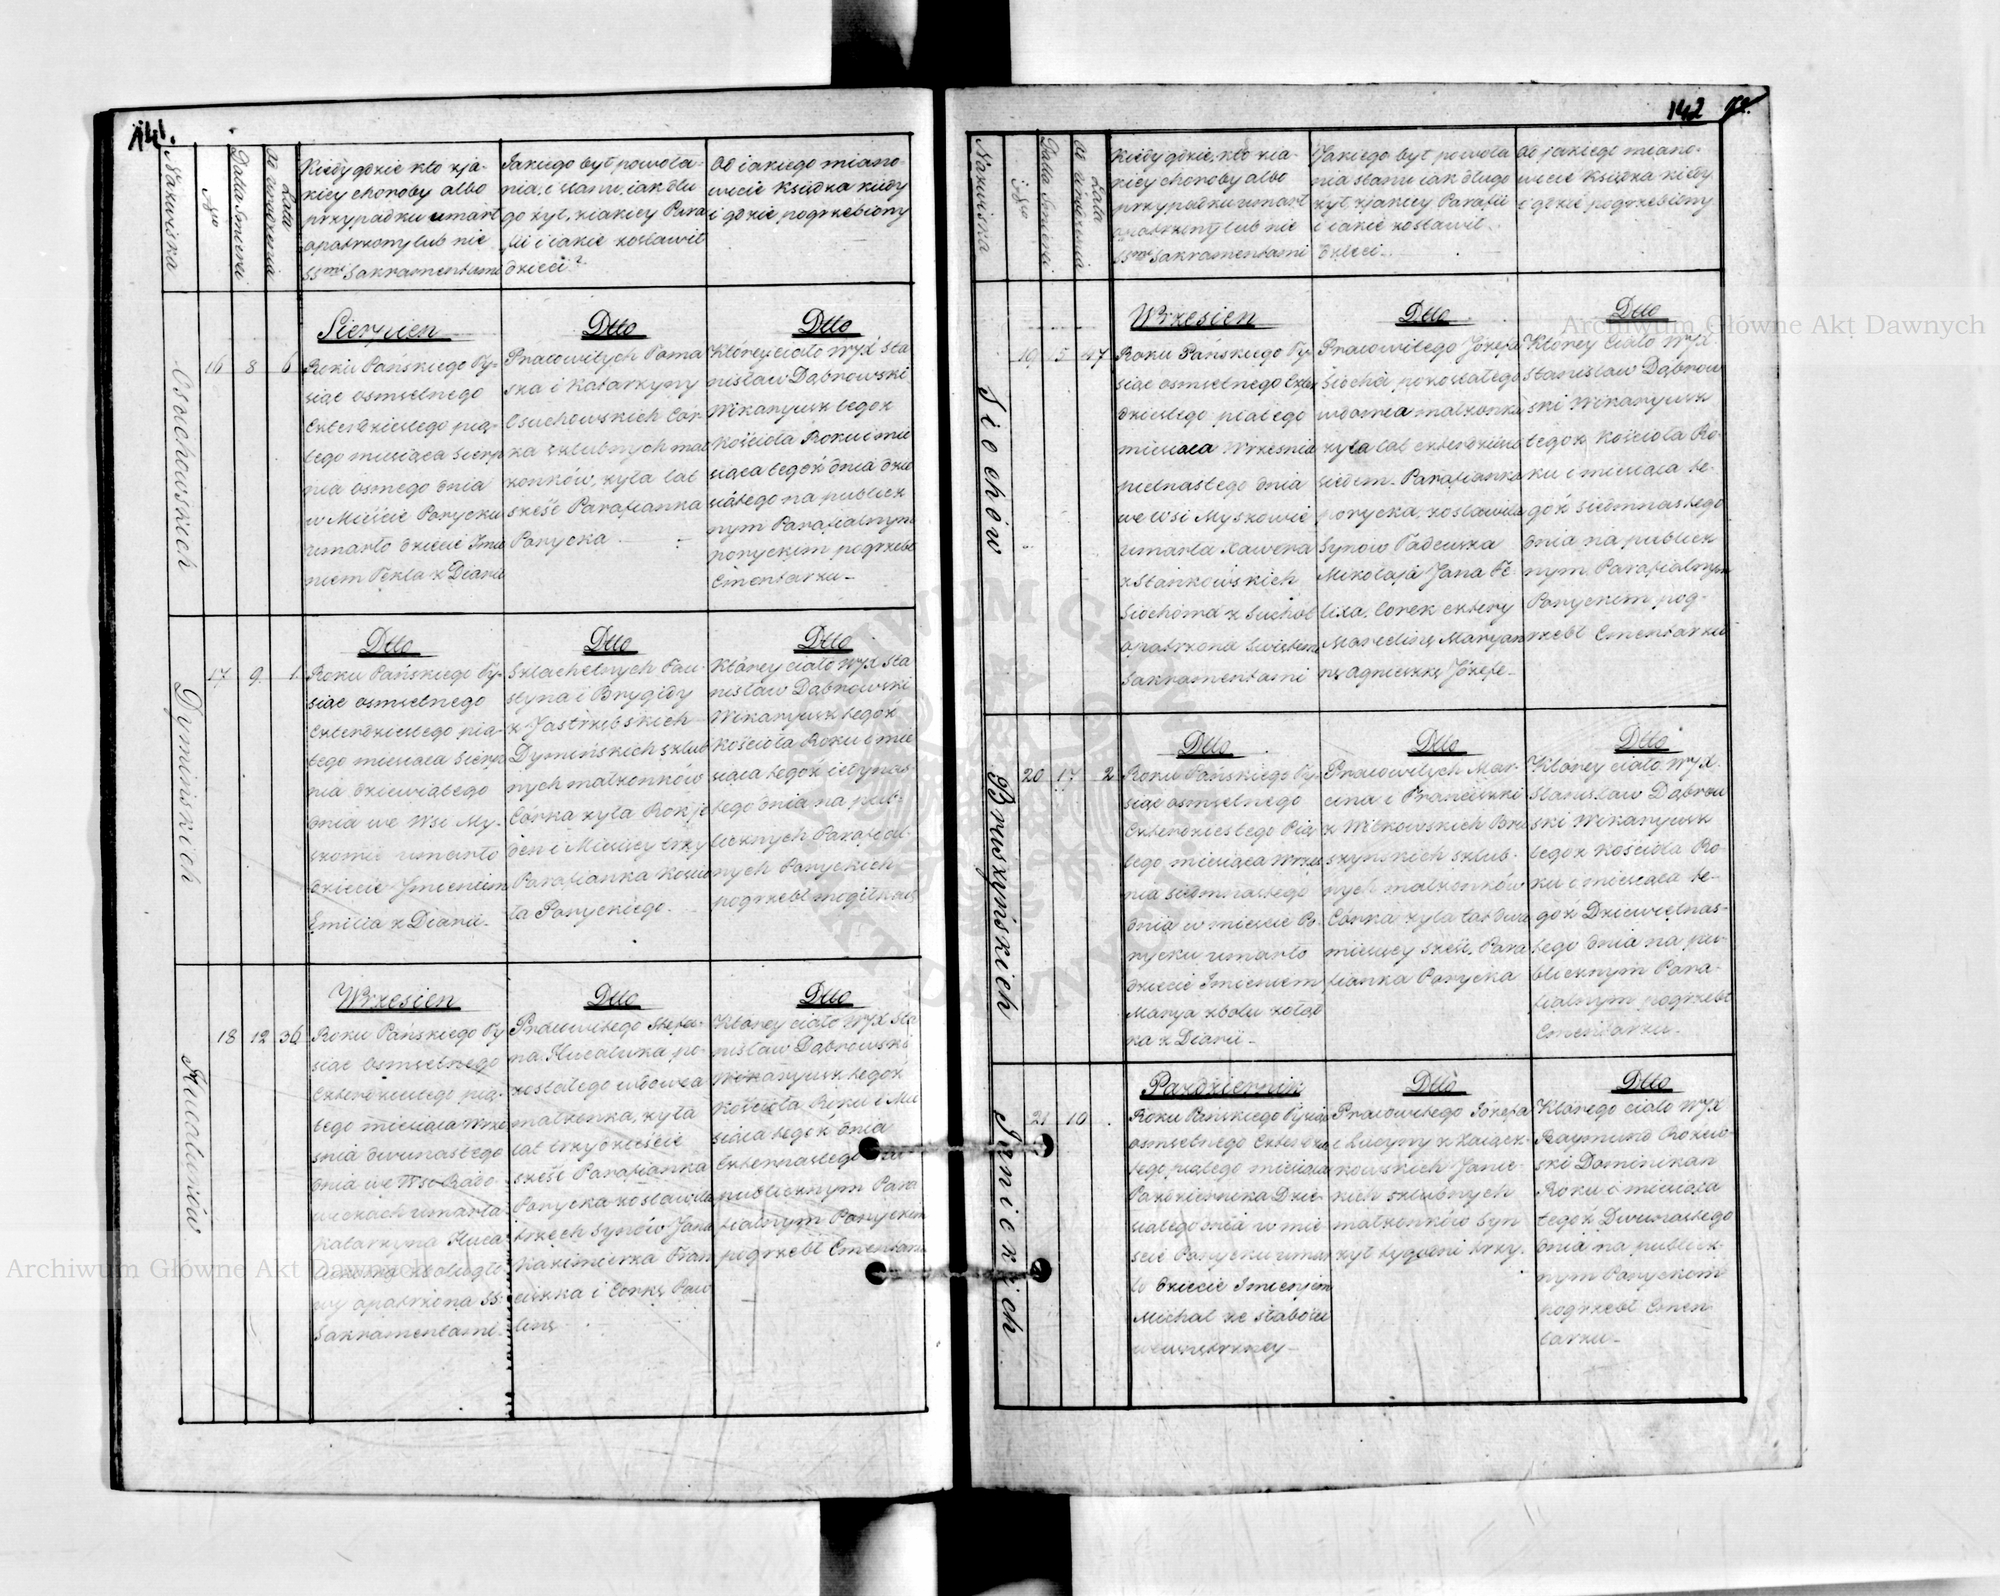 141.
Nazwiska
Nro
Datta Smierci
Lata
od urodzenia
Kiedy gdzie kto zja-
kiey choroby albo
przypadku umarł
opatrzony lub nie
SSmi Sakramentami
Jakiego był powoła-
nia, i stanu, iak dłu
go żył, ziakiey Para
fii i iakie zostawił
dzieci?
Od iakiego miano-
wicie Księdza kiedy
i gdzie pogrzebiony
Osuchowskich
16 8 6
Sierpień
Roku Pańskiego Ty-
siąc osmsetnego
Czterdziestego pią-
tego miesiąca Sierp
nia osmego dnia
w Mieście Porycku
umarło dziecię Imie
niem Tekla z Diarii
Dtto
Pracowitych Toma
sza i Katarzyny
Osuchowskich Cór
ka szlubnych mał
żonków, żyła lat
sześć Parafianka
Porycka
Dtto
Którey ciało WJX Sta
nisław Dąbrowski
Wikaryusz tegoż
Kościoła Roku i mie
siąca tegoż dnia dzie
wiątego na publicz
nym Parafialnym
poryckim pogrzebł
Cmentarzu
Dymińskich
17 9 1
Dtto
Roku Pańskiego Ty-
siąc osmsetnego
Czterdziestego pią-
tego miesiąca Sierp
nia dziewiątego
dnia we Wsi My-
szowie umarło
dziecię Jmieniem
Emilia z Diarii
Dtto
Szlachetnych Fau-
styna i Brygidy
z Jastrzębskich
Dymińskich szlub
nych małżonków
Córka żyła Rok je
den i Miesięcy trzy
Parafianka Kościo
ła Poryckiego.
Dtto
Którey ciało WJX Sta
nisław Dąbrowski
Wikaryusz tegoż
Kościoła Roku i mie
siąca tegoż iedynas
tego dnia na pub-
licznych Parafial
nych Poryckich
pogrzebł mogiłkach
Hucaluków
18 12 36
Wrzesień
Roku Pańskiego Ty
siąc Osmsetnego
Czterdziestego pią-
tego miesiąca Wrze
snia dwunastego
dnia we Wsi Rado
wiczach umarła
Katarzyna Huca
opatrzona SS.
Sakramentami.
Dtto
Pracowitego Stefa-
na Hucaluka, po-
zostałego wdowca
małżonka, żyła
lat trzydzieście
sześć Parafianka
Porycka zostawiła
trzech Synów Jana
Kazimierza Fran
ciszka i Corkę Paw
linę
Dtto
Którey ciało WJX Sta
nisław Dąbrowski
Wikaryusz tegoż
Kościoła Roku i Mie
siąca tegoż dnia
Czternastego na
publicznym Para
fialnym Poryckim
pogrzebł Cmentarzu
142
Nazwiska
Nro
Datta Smierci
Lata
od urodzenia
Kiedy gdzie, kto zia-
kiey choroby albo
przypadku umarł
opatrzony lub nie
SSmi Sakramentami
Jakiego był powoła
nia stanu iak długo
żył zjakiey Parafii
i iakie zostawił
dzieci
Od jakiego miano-
wicie Księdza kiedy,
i gdzie pogrzebiony
Siochów
19 15 47
Wrzesień
Roku Pańskiego Ty-
siąc osmsetnego Czter
dziestego piątego
miesiąca Wrześnią
pietnastego dnia
we Wsi Myszowie
umarła Xawera
z Stankowskich
Siochowa z Suchot
opatrzona Swiętemi
Sakramentami
Dtto
Pracowitego Józefa
Siocha, pozostałego
wdowca małżonka
żyła lat czterdzieści
siedem. Parafianka
porycka, zostawiła
Synów Tadeusza
Mikołaja Jana Fe
lixa, Corek cztery
Marcelinę, Maryan
nę Agnieszkę Józefę
Dtto
Którey ciało WJX.
Stanisław Dąbrow
ski Wikaryusz
tegoż Kościoła Ro-
ku i miesiąca te-
goż siedmnastego
dnia na publicz
nym Parafialnym
Poryckim pog-
rzebł Cmentarzu
Bruszyńskich
20 17 2
Dtto
Roku Pańskiego Ty-
siąc osmsetnego
Czterdziestego Pią
tego miesiąca Wrzes
nia siedmnastego
dnia w mieście Po-
rycku umarło
dziecię Imieniem
Marya zbolu żołąd
ka z Diarii
Dtto
Pracowitych Mar-
cina i Franciszki
z Witkowskich Bru
szyńskich szlub-
nych małżonków
Córka żyła lat dwa
miesięcy sześć, Para
fianka Porycka
Dtto
Którey ciało WJX.
Stanisław Dąbrow
ski Wikaryusz
tegoż Kościoła Ro-
ku i miesiąca te-
goż Dziewiętnas-
tego dnia na pu-
blicznym Para-
fialnym pogrzebł
Cmentarzu
Janickich
21 10
Październik
Roku Pańskiego Tysiąc
osmsetnego Czterdzies
tego piątego miesiąca
Października Dzie-
siątego dnia w mie
ście Porycku umar
ło dziecię Imieniem
Michał ze słabości
wewnętrzney
Dtto
Pracowitego Józefa
i Lucyny z Zaiącz-
kowskich Janic-
kich szlubnych
małżonków Syn
żył tygodni trzy.
Dtto
Którego ciało WJX
Raymund
Dominikan
Roku i miesiąca
tegoż Dwunastego
dnia na publicz-
nym Poryckom
pogrzebł Cmen
tarzu
Archiwum Główne Akt Dawnych
Archiwum Główne Akt Dawnych